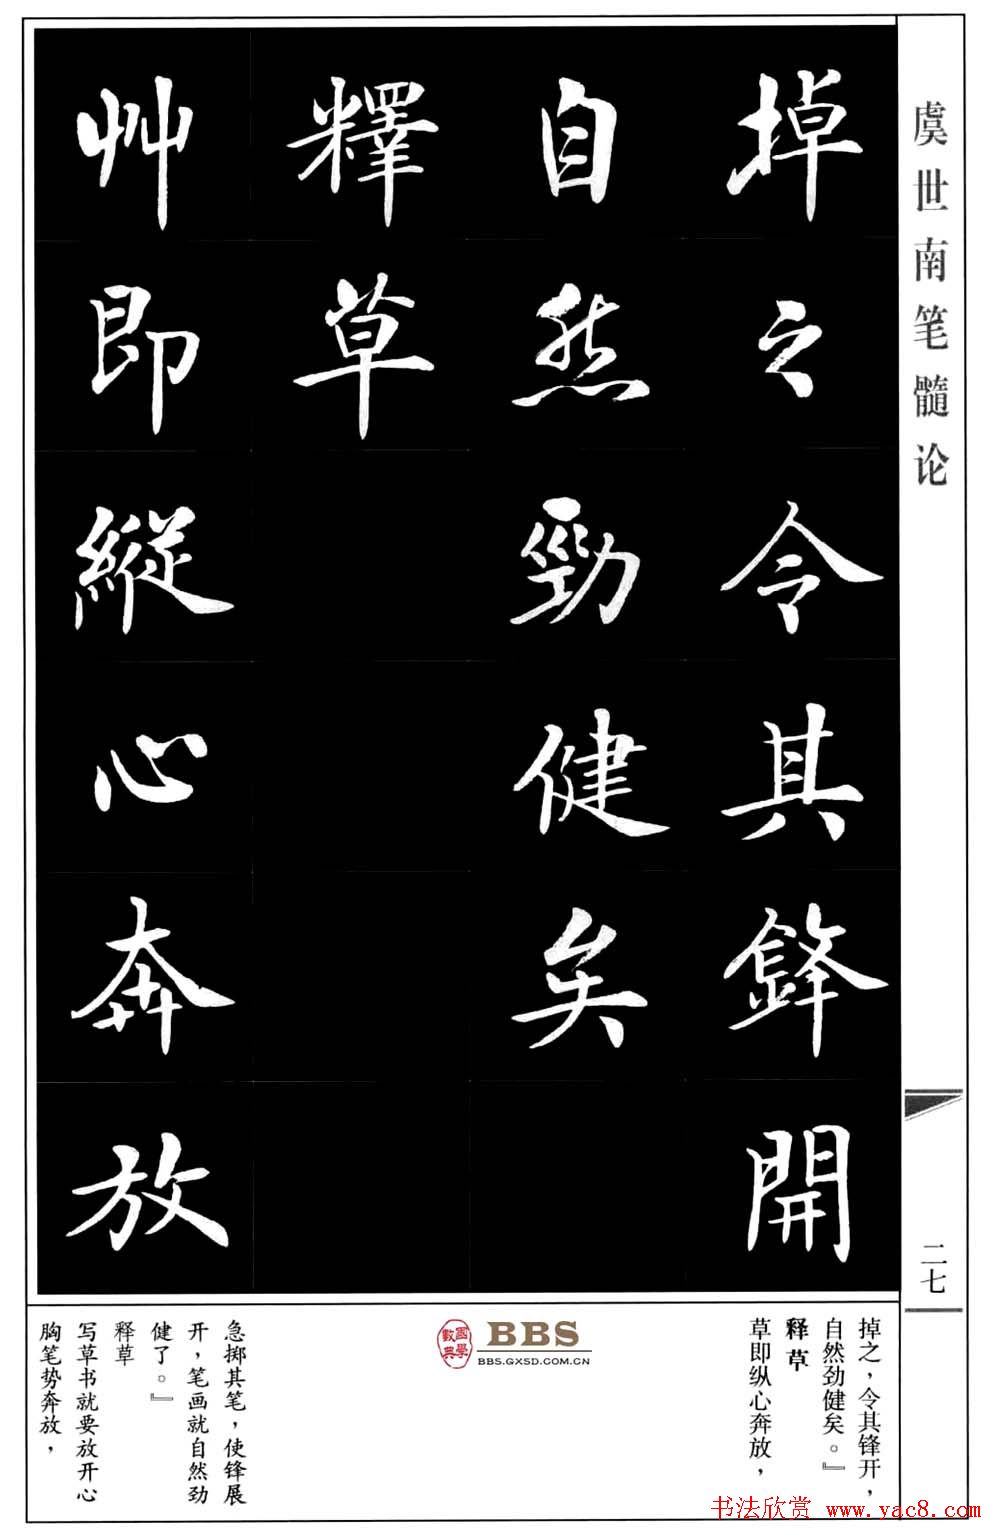 虞世南笔髓论
二七
掉之令其鋒開
自然勁健矣
釋草
艸即縱心奔放
掉之，令其锋开，
自然劲健矣。』
释草
草即纵心奔放，
國學數典
BBS
BBS.GXSD.COM.CN
急掷其笔，使锋展
开，笔画就自然劲
健了。』
释草
写草书就要放开心
胸笔势奔放，
书法欣赏 www.yac8.com